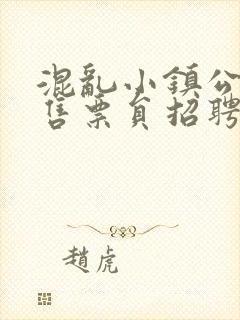 混亂小鎮公
售票員招聘
趙虎